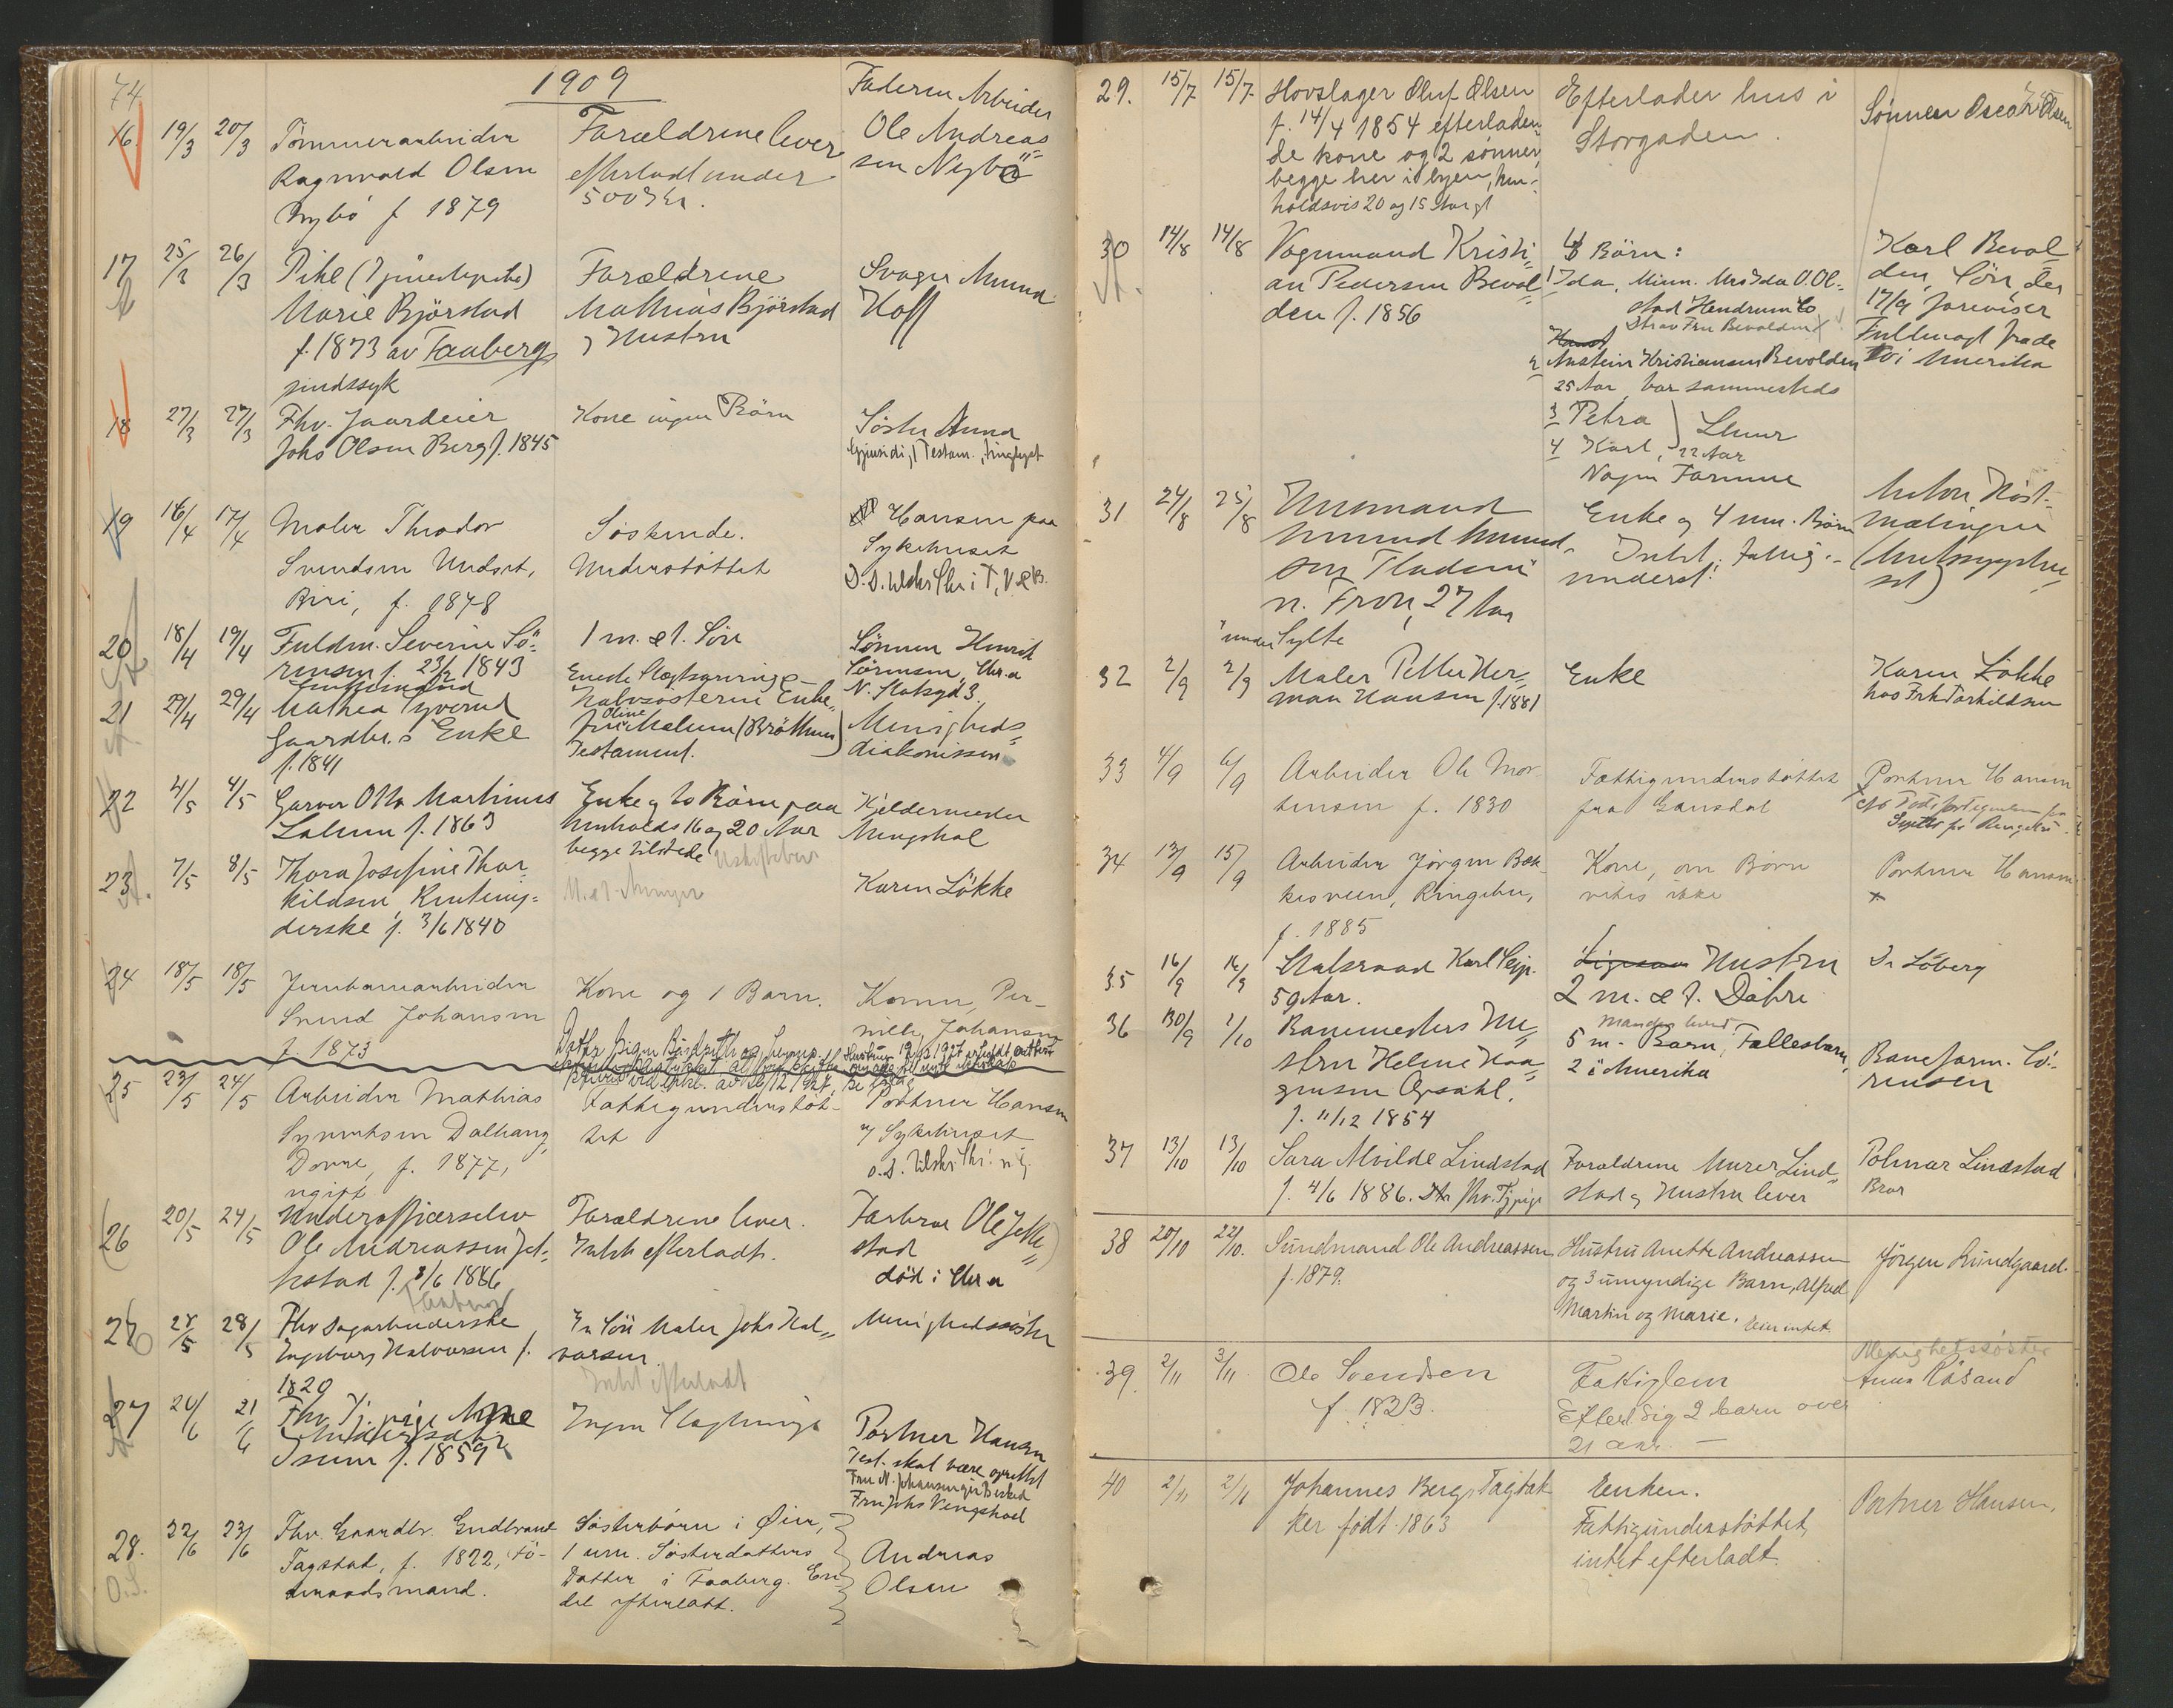 74
1909
16 19/3 20/3 Tømmerarbeider
Ragnvald Olsen
Nybö f 1879
Forældrene lever
efterladt under
500 Kr.
Faderen Arbeider
Ole Andreas
sen Nybö
17 25/3 26/3 Pike (Tjenestepike)
Marie Björstad
f. 1873 av Faaberg
sindssyk
Forældrene
Mathias Björstad
og Hustru
Svoger Amund
Hoff
18 27/3 27/3 Fhv. Gaardeier
Johs Olsen Berg f. 1845
Kone ingen Börn
Söster Anna
Gjensidi. Testam., tinglyst
19 16/4 17/4 Maler Theodor
Svendsen Undset,
Biri, f. 1878
Söskende.
Understöttet
Hansen paa
Sykehuset
20 18/4 19/4 Fuldm. Severin Sö-
rensen f. 23/2 1843
1 m. & f. Sön
Sönnen Henrik
Sörensen, Chr.a
21 27/4 29/4 Mathea
Gaardbr.s Enke
f. 1841
Eneste Slægtninge
Halvsösteren Enke-
fru Oline Mælum (Bröttum)
Testament.
Menigheds-
diakonissen
22 4/5 4/5 Garver Otto Martinius
Lalum f. 1863
Enke og to Börn paa
henholds 16 og 20 Aar
begge tilstede
Kjeldermester
Mengshol
23 7/5 8/5 Thora Josefine Thor-
kildsen, Rentenij-
derske f. 3/6 1840
Karen Lökke
24 18/5 18/5 Jernbanearbeider
Svend Johansen
f. 1873
Kone og 1 Barn.
Konen, Per-
nille Johansen
25 23/5 24/5 Arbeider Mathias
Syvertsen Dalhaug,
Dovre, f. 1877,
ugift
Fattigunderstöt-
tet
Portner Hansen
v/ Sykehuset
26 20/5 24/5 Underofficerselev
Ole Andreassen Jel-
stad f. 8/6 1886
Forældrene lever.
Intet efterladt.
Farbror Ole Jel-
stad
död i Chr.a
27 28/5 Fhv Sagarbeiderske
Ingeborg Halvorsen f.
1820
En Sön Maler Johs Hal-
vorsen.
Intet efterladt
Menighedssöster
27 20/6 21/6 Fhv Tj. pige Anne
Isum f. 1859
Ingen Slægtninge
Portner Hansen
Test. skal være oprettet
Fru Johs Vengshoel
28. 22/6 23/6 Fhv Gaardbr. Gudbrand
Fagstad, f. 1822, Fö-
deraadsmand.
Sösterbörn i Øier,
1 um. Sösterdatters
Datter i Faaberg. En
del efterlatt.
Andreas
Olsen
29. 15/7 15/7 Hovslager Oluf Olsen
f. 14/4 1854 efterladen-
de kone og 2 sønner,
begge her i byen, hen-
holdsvis 20 og 15 Aar gl
Efterlader hus i
Storgaden.
Sønnen Oscar Olsen
30 14/8 14/8 Vognmand Kristi-
an Pedersen Bevol-
den f. 1856
4 Börn:
1 Ida, Minn. Mrs Ida O. Ol-
stad Hendrum Co
2 Anstein Kristiansen Bevolden
25 Aar, bor sammesteds
3 Petra
4 Karl, 22 Aar
Karl Bevol-
den, Sön, der
17/9 foreviser
Fuldmagt fra de
to i Amerika
31 24/8 25/8 Ungmand
Amund Amund-
sen
n. Fron, 27 Aar
under Sylte
Enke og 4 um. Börn
Intet. Fattig-
underst.
Anton Höst-
mælingen
32 2/9 2/9 Maler Petter Her-
man Hansen f. 1881
Enke
Karen Lökke
hos Frk Torkildsen
33 4/9 6/9 Arbeider Ole Mor-
tensen f. 1830
Fattigunderstöttet
fra Gausdal
Portner Hansen
34 13/9 15/9 Arbeider Jörgen Bæk-
kesveen, Ringebu,
f. 1885
Kone, om Börn
vites ikke
Portner Hansen
35 16/9 16/9 Statsraad Karl Seip.
59 Aar.
Hustru
2 m. & f. Döbre
Dr Löberg
36 30/9 1/10 Banemesters Hu-
stru Helene Haa-
gensen Opsahl.
f. 11/12 1854
Manden lever.
5 m. Barn, Fællesbarn,
2 i Amerika
Baneform. Sö-
rensen
37 13/10 13/10 Sara Alvilde Lindstad
f. 4/6 1886. Fhv. Tj.pige
Forældrene Murer Lind-
stad og Hustru lever
Polmar Lindstad
Bror
38 20/10 22/10. Sündmand Ole Andreassen
f. 1879.
Hustru Anette Andreassen
og 3 umyndige Barn, Alfred
Martin og Marie. Eier intet.
Jörgen Lundgaard.
39. 2/11 3/11. Ole Svendsen
f. 1823.
Fattiglem
Efterl. sig 2 barn over
21 aar. —
Menighetssöster
Anna RöSand
40 2/11 2/11 Johannes Berg, Tagtæk
ker født 1863
Enken.
Fattigunderstøttet,
intet efterladt.
Portner Hansen,